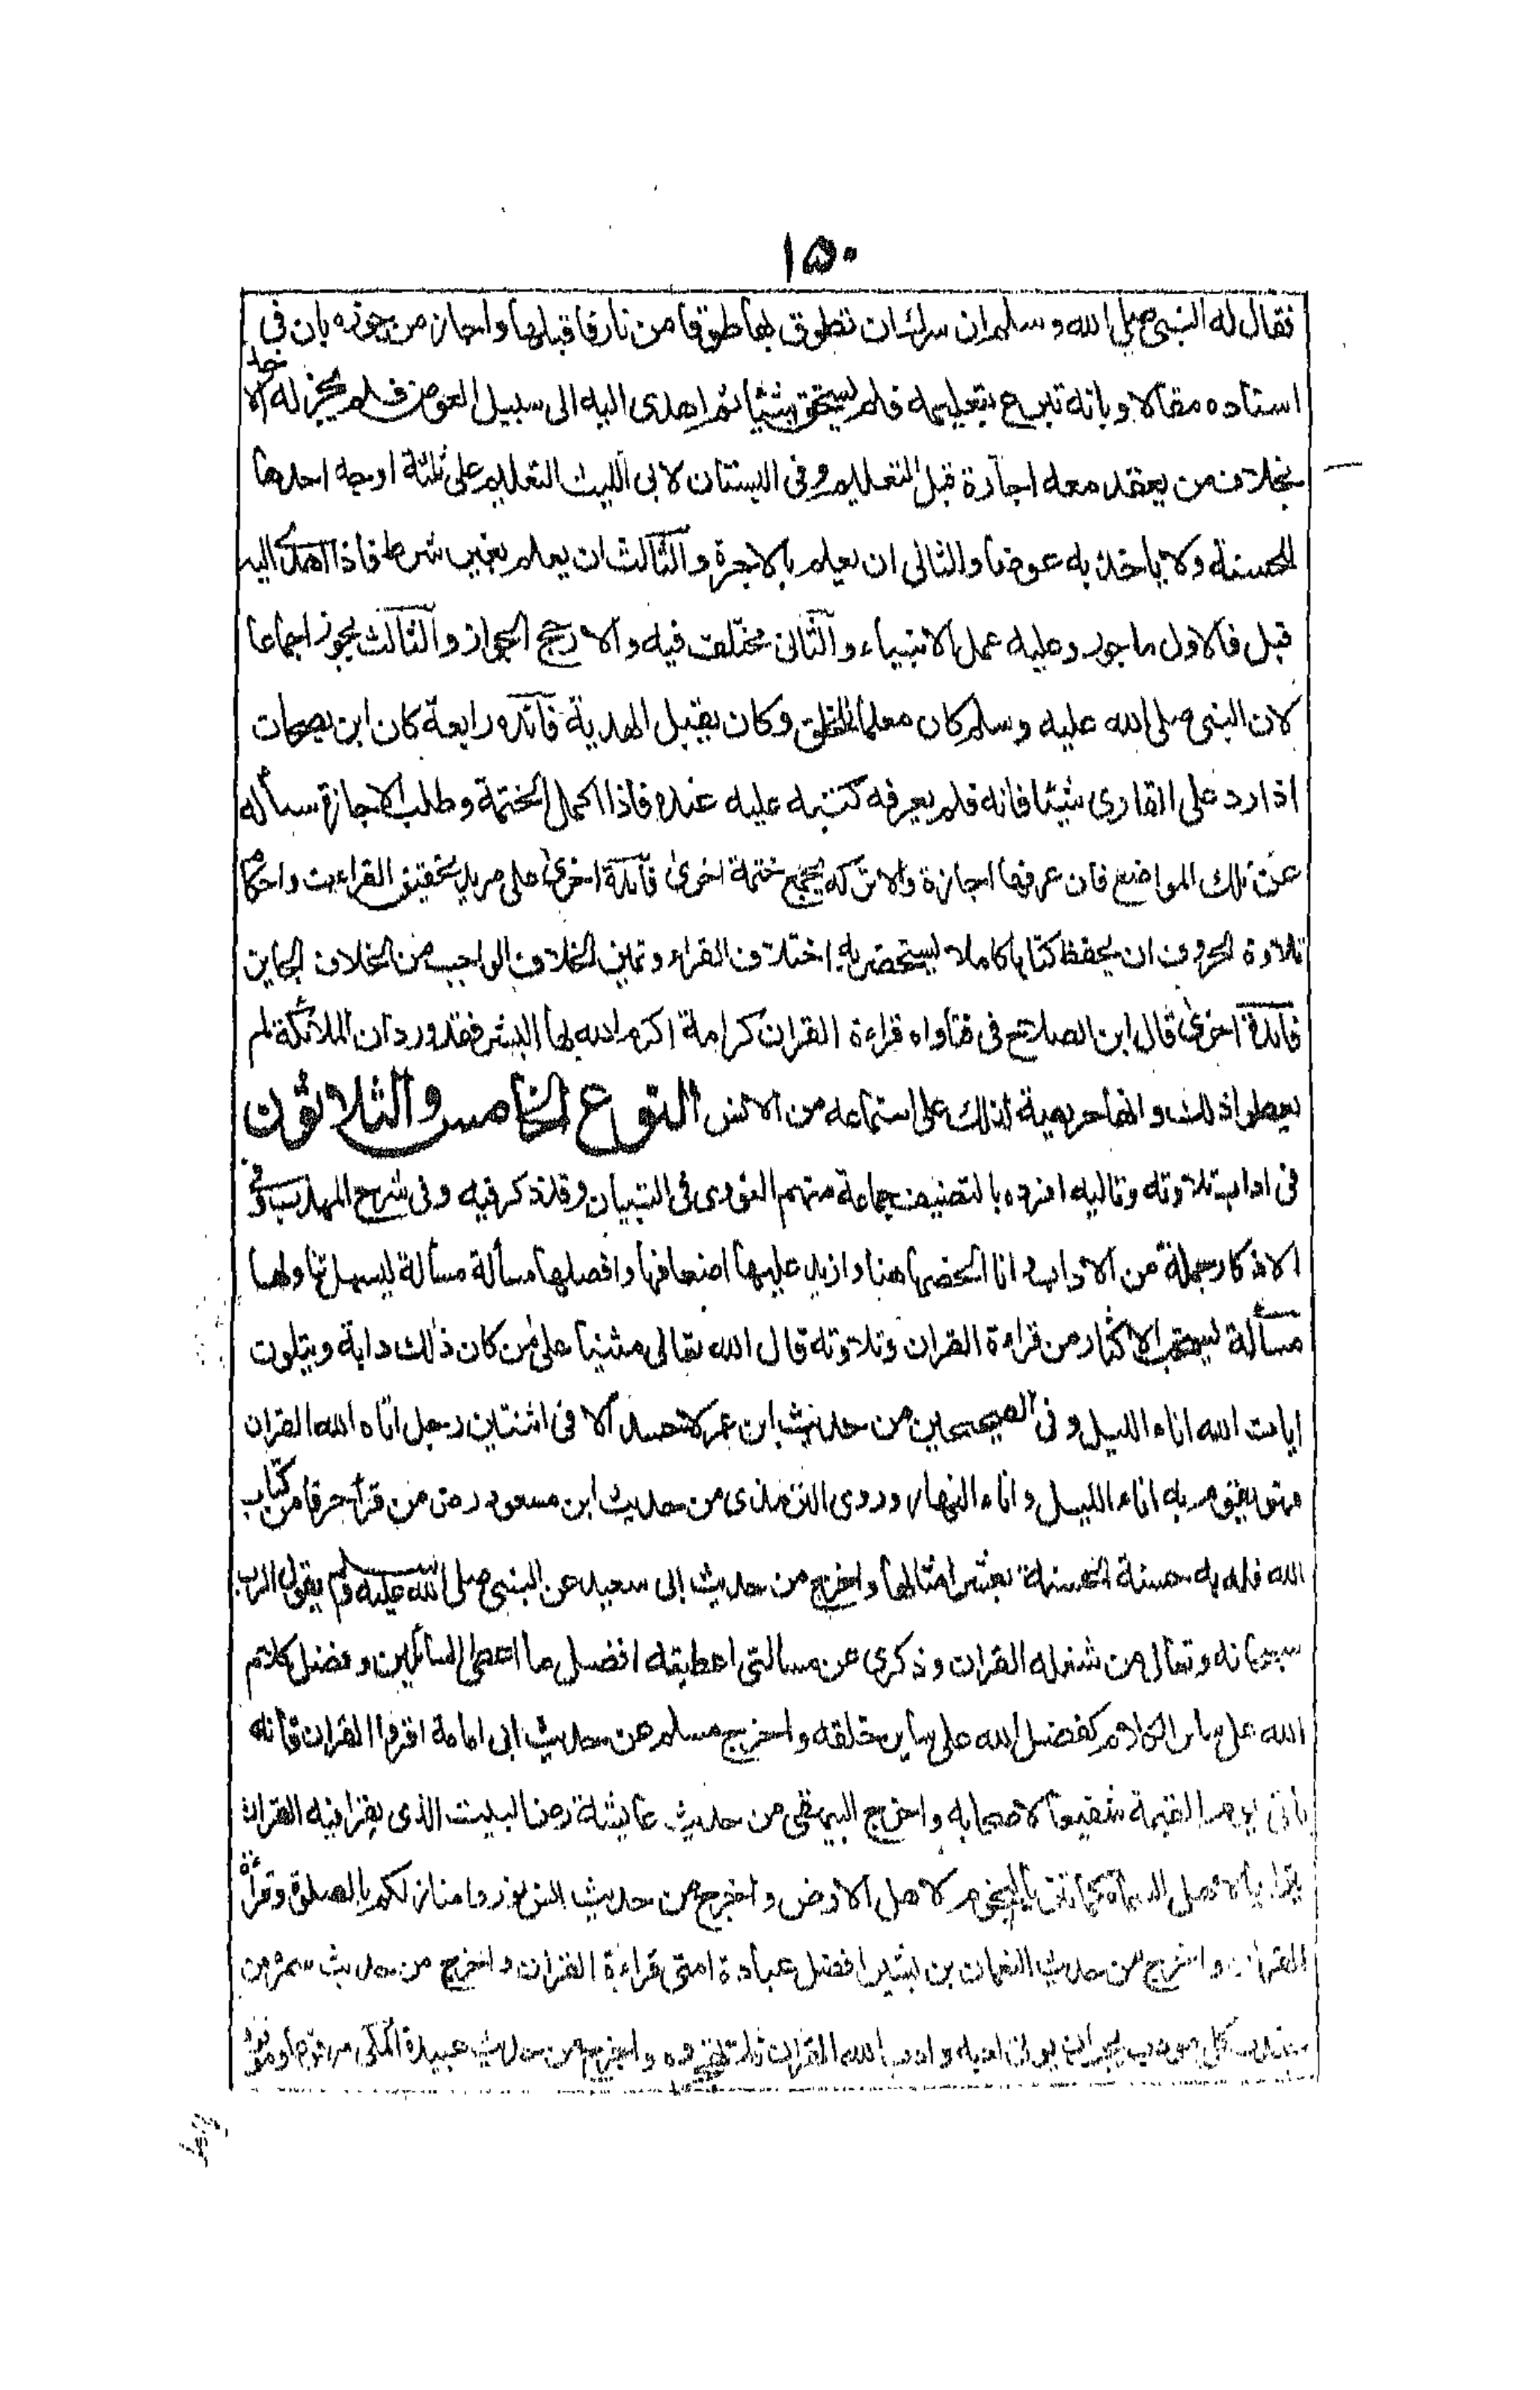 ١٥٠
فقال له النبى صلى الله و سلم ان سرك ان تطوق بها طوقا من نار فاقبلها واجاز من جوزه بان فى
استاده مقالا وبانه تبرع بتعليمه فلم يستحق شيئا ثم اهدى اليه الى سبيل العوض فلم يجز له الاخذ
بخلاف من يعقد معه اجازة قبل التعليم وفى البستان لابى الليث التعليم على ثلثة اوجه احدها
للحسنة ولا ياخذ به عوضا والثانى ان يعلم بالاجرة والثالث ان يعلم بغير شرط فاذا اهدى اليه
قبل فالاول ماجور وعليه عمل الانبياء والثانى مختلف فيه والارجح الجواز والثالث يجوز اجماعا
لان النبى صلى الله عليه وسلم كان معلما للخلق وكان يقبل الهدية فائده رابعة كان ابن بصحان
اذا رد على القارى شيئا فاته فلم يعرفه كتبه عليه عنده فاذا اكمل الختمة وطلب الاجازة سأله
عن تلك المواضع فان عرفها اجازة والا تركه يجمع ختمة اخرى فائدة اخرى على مريد تحقيق القراءت واحكام
تلاوة الحروف ان يحفظ كتابا كاملا يستحضر به اختلاف القراء وتميز الخلاف الواجب من الخلاف الجايز
فائدة اخرى قال ابن الصلاح فى فتاواه قراءة القران كرامة اكرم الله بها البشر فقد ورد ان الملائكة لم
يعطوا ذلك وانها حريصة لذلك على استماعه من الانس النوع الخامس والثلاثون
فى اداب تلاوته وتاليه افرده بالتصنيف جماعة منهم النووى فى التبيان وقد ذكر فيه وفى شرح المهذب وفى
الاذكار جملة من الاداب وانا الخصها هنا وازيد عليها اضعافها وافصلها مسألة مسألة ليسهل تناولها
مسألة يستحب الاكثار من قراءة القران وتلاوته قال الله تعالى مثنيا على من كان ذلك دابة ويتلون
ايات الله اناء الليل وفى الصحيحين من حديث ابن عمر لاحسد الا فى اثنتين رجل اتاه الله القران
فهو يقوم به اناء الليل واناء النهار وروى الترمذى من حديث ابن مسعود رض من قرأ حرفا من كتاب
الله فله به حسنة والحسنة بعشر امثالها واخرج من حديث ابى سعيد عن النبى صلى الله عليه وسلم يقول الرب
سبحانه وتعالى من شغله القران وذكرى عن مسالتى اعطيته افضل ما اعطى السائلين وفضل كلام
الله على سائر الكلام كفضل الله على ساير خلقه واخرج مسلم من حديث ابى امامة اقرءوا القران فانه
ياتى يوم القيمة شفيعا لاصحابه واخرج البيهقى من حديث عايشة رض البيت الذى يقرا فيه القران
يترا يا لاهل السماء كما تترا يا النجوم لاهل الارض واخرج من حديث انس نوروا منازلكم بالصلوة وقرأة
القران واخرج من حديث النعمان بن بشير افضل عبادة امتى قراءة القران واخرج من حديث سمرة بن
جندب كل مودب يحب ان يوتى ادبه وادب الله القران فلا تهجروه واخرج من حديث عبيدة المكى مرفوعا وموقوفا